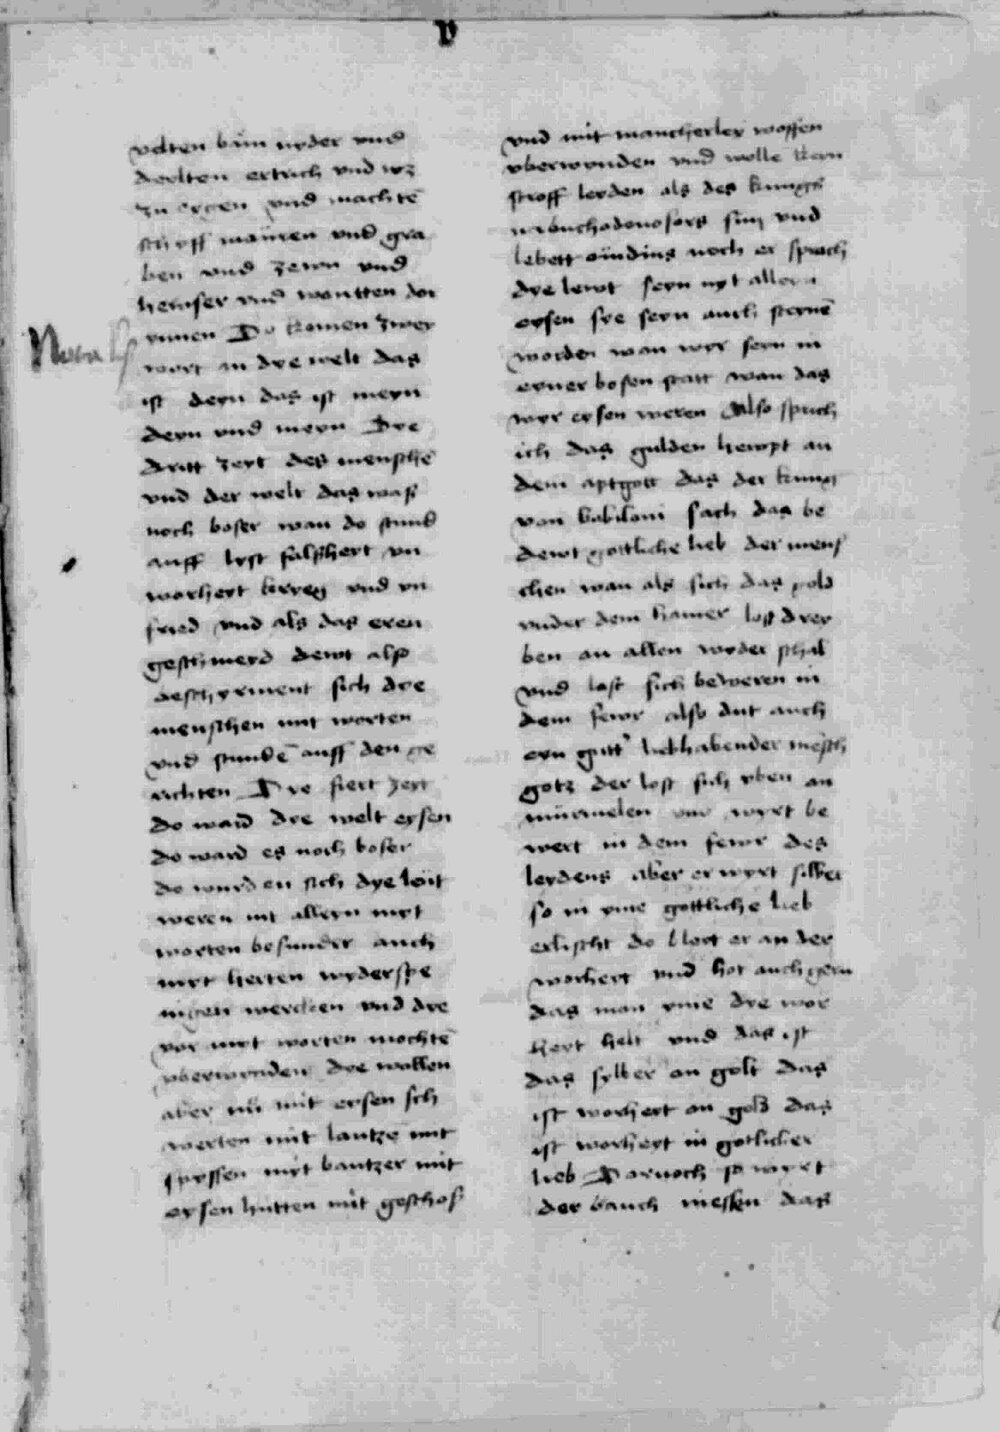 v
velten bäm nyder vnd
deylten ertrich vnd
zu eygen vnd machtē
schyff mauren vnd gra
ben vnd zewn vnd
hewser vnd wontten dor
ynnen Do komen zwey
Nota
wort in dye welt das
ist deyn das ist meyn
deyn vnd meyn Dye
dritt zeyt des menschē
vnd der welt das waß
noch boser wan do stund
auff lyst falsheyt vn
worheyt kryeg vnd vn
frid vnd als das eren
geschmeyd dewt also
beschyrment sich dye
menschen mit worten
vnd stundē auff den ge
richten Dye fiert zeyt
do ward dye welt eysen
do ward es noch boser
do wurden sich dye leüt
weren nit alleyn myt
worten besunder auch
myt herten wyderspe
nigen wercken vnd dye
vor myt worten mochtē
vberwynden dye wollen
aber nü mit eysen sich
werten mit lantzē mit
spyssen myt bantzer mit
eysen hutten mit geschoß
vnd mit mancherley woffen
vberwynden vnd wolle keyn
stroff leyden als des kungs
nabuchodonosors sun vnd
lebett noch er sprach
dye lewt seyn nyt alleyn
eysen sye seyn auch steynē
worden wan wyr seyn in
eyner bosen statt wan das
wyr eysen weren Also sprich
ich das gulden hewpt an
dem aptgott das der kung
von babiloni sach das be
dewt gottliche lieb der mens
chen wan als sich das gold
vnder dem hamer lost drey
ben an allen wyder schal
vnd lost sich beweren in
dem fewr also dut auch
eyn gutt liebhabender mēsch
gotz der lost sich vben an
mürmelen vnd wyrt be
wert in dem fewr des
leydens aber er wyrt silber
so in yme gottliche lieb
erlischt do bleyt er an der
worheyt vnd hot auch gern
das man yme dye wor
heyt helt vnd das ist
das sylber an golt das
ist worheyt an gold das
ist worheyt in gotlicher
lieb Darnoch so wyrt
der bauch messen das